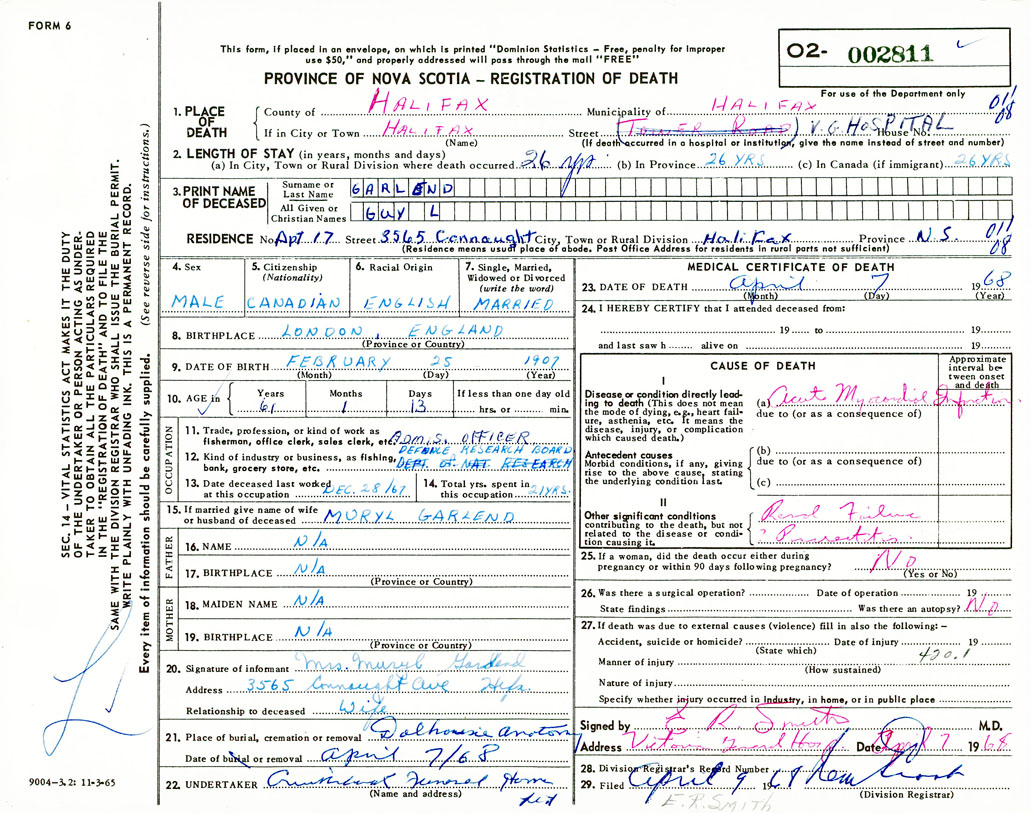 FORM 6
This form, if placed in an envelope, on which is printed "Dominion Statistics – Free, penalty for improper
use $50," and properly addressed will pass through the mail "FREE"
PROVINCE OF NOVA SCOTIA – REGISTRATION OF DEATH
02- 002811
For use of the Department only
1. PLACE OF DEATH
County of HALIFAX Municipality of HALIFAX 011 08
If in City or Town HALIFAX Street (TOWER ROAD) V.G. HOSPITAL House No.
(Name) (If death occurred in a hospital or institution, give the name instead of street and number)
2. LENGTH OF STAY (in years, months and days)
(a) In City, Town or Rural Division where death occurred 26 yrs (b) In Province 26 YRS (c) In Canada (if immigrant) 26 YRS
3. PRINT NAME OF DECEASED
Surname or Last Name GARLEND
All Given or Christian Names GUY L
RESIDENCE No. Apt 17 Street 3565 Connaught City, Town or Rural Division Halifax Province N.S. 011 08
(Residence means usual place of abode. Post Office Address for residents in rural parts not sufficient)
4. Sex
MALE
5. Citizenship (Nationality)
CANADIAN
6. Racial Origin
ENGLISH
7. Single, Married, Widowed or Divorced (write the word)
MARRIED
8. BIRTHPLACE LONDON, ENGLAND
(Province or Country)
9. DATE OF BIRTH FEBRUARY 25 1907
(Month) (Day) (Year)
10. AGE in Years Months Days If less than one day old
61 1 13 hrs. or min.
OCCUPATION
11. Trade, profession, or kind of work as
fisherman, office clerk, sales clerk, etc. ADM.S. OFFICER
DEFENCE RESEARCH BOARD
12. Kind of industry or business, as fishing,
bank, grocery store, etc. DEPT. OF NAT. RESEARCH
13. Date deceased last worked at this occupation DEC. 28/67
14. Total yrs. spent in this occupation 21 YRS.
15. If married give name of wife
or husband of deceased MURYL GARLEND
FATHER
16. NAME N/A
17. BIRTHPLACE N/A
(Province or Country)
MOTHER
18. MAIDEN NAME N/A
19. BIRTHPLACE N/A
(Province or Country)
20. Signature of informant Mrs. Muryl Garlend
Address 3565 Connaught Ave Hfx.
Relationship to deceased Wife
21. Place of burial, cremation or removal Dalhousie
Date of burial or removal April 7/68
22. UNDERTAKER Cruikshank Funeral Home
(Name and address)
MEDICAL CERTIFICATE OF DEATH
23. DATE OF DEATH April 7 1968
(Month) (Day) (Year)
24. I HEREBY CERTIFY that I attended deceased from:
19 to 19
and last saw h alive on 19
CAUSE OF DEATH
Approximate interval between onset and death
I
Disease or condition directly leading to death (This does not mean
the mode of dying, e.g., heart failure, asthenia, etc. It means the
disease, injury, or complication
which caused death.)
(a) Acute Myocardial Infarction
due to (or as a consequence of)
Antecedent causes
Morbid conditions, if any, giving
rise to the above cause, stating
the underlying condition last.
(b)
due to (or as a consequence of)
(c)
II
Other significant conditions
contributing to the death, but not
related to the disease or condition causing it.
Renal Failure
?
25. If a woman, did the death occur either during
pregnancy or within 90 days following pregnancy? No
(Yes or No)
26. Was there a surgical operation? Date of operation 19
State findings Was there an autopsy? No
27. If death was due to external causes (violence) fill in also the following: –
Accident, suicide or homicide? Date of injury 19
(State which)
420.1
Manner of injury
(How sustained)
Nature of injury
Specify whether injury occurred in industry, in home, or in public place
Signed by E R Smith M.D.
Address Victoria General Hosp Date April 7 1968
28. Division Registrar's Record Number
29. Filed April 9 1968
(Division Registrar)
E.R. SMITH
SEC. 14 – VITAL STATISTICS ACT MAKES IT THE DUTY
OF THE UNDERTAKER OR PERSON ACTING AS UNDER-
TAKER TO OBTAIN ALL THE PARTICULARS REQUIRED
IN THE "REGISTRATION OF DEATH" AND TO FILE THE
SAME WITH THE DIVISION REGISTRAR WHO SHALL ISSUE THE BURIAL PERMIT.
WRITE PLAINLY WITH UNFADING INK. THIS IS A PERMANENT RECORD.
Every item of information should be carefully supplied. (See reverse side for instructions.)
9004–3.2: 11-3-65